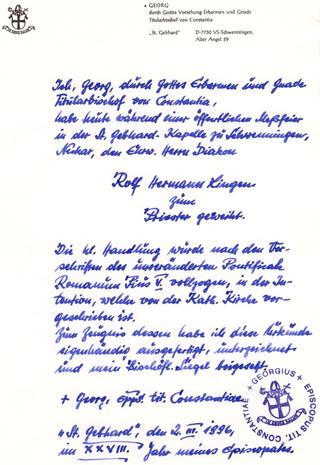 + GEORG
durch Gottes Vorsehung Erbarmen und Gnade
Titularbischof von Constantia
"St. Gebhard" D-7730 VS-Schwenningen,
Alter Angel 19
Ich, Georg, durch Gottes Erbarmen und Gnade
Titularbischof von Constantia,
habe heute während einer öffentlichen Meßfeier
in der St. Gebhard-Kapelle zu Schwenningen,
Neckar, den Ehrw. Herrn Diakon
Rolf Hermann Lingen
zum
Priester geweiht.
Die hl. Handlung wurde nach den Vor-
schriften des unveränderten Pontificale
Romanum Pius V. vollzogen, in der In-
tention, welche von der Kath. Kirche vor-
geschrieben ist.
Zum Zeugnis dessen habe ich diese Urkunde
eigenhändig ausgefertigt, unterzeichnet
und mein Bischöfl. Siegel beigesetzt.
+ Georg, Epps. tit. Constantiae
"St. Gebhard", den 2. III. 1996,
im XXVIII. Jahr meines Episcopates.
+ GEORGIUS + EPISCOPUS TIT. CONSTANTIAE